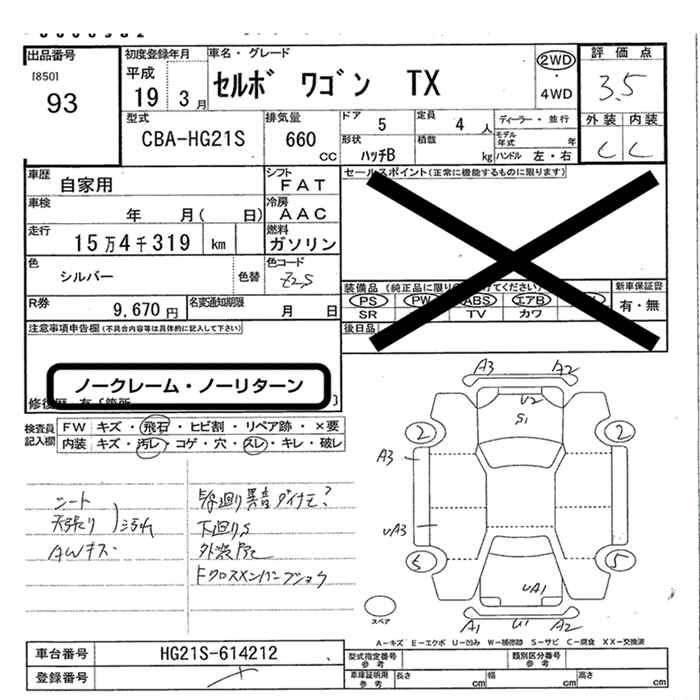 出品番号
[850]
93
初度登録年月
平成
19 3月
車名・グレード
セルボ ワゴン TX
2WD
・
4WD
評価点
3.5
外装 内装
C C
型式
CBA-HG21S
排気量
660
CC
ドア 5
定員 4 人
ディーラー・並行
モデル年式 年
形状 ハッチB
積載 kg
ハンドル 左・右
車歴
自家用
シフト
FAT
セールスポイント(正常に機能するものに限ります)
車検
年 月( 日)
冷房
AAC
走行
15万4千319 km
燃料
ガソリン
色
シルバー
色替
色コード
Z2S
装備品(純正品に限り
てください)
新車保証書
PS PW ABS エアB
有・無
SR TV カワ
R券
9,670 円
名変通知期限
月 日
後日品
注意事項申告欄(不具合内容等は具体的に記入して下さい)
ノークレーム・ノーリターン
検査員記入欄
FW キズ・飛石・ヒビ割・リペア跡・×要
内装 キズ・汚レ・コゲ・穴・スレ・キレ・破レ
シート
天張り
汚れ
AWキズ
異音ダイナモ?
下廻りS
A3 A2
U2
S1
2 2
A3
UA3
5 5
UA1
A1 U1 A2
スペア
A-キズ E-エクボ U-凹み W-補修跡 S-サビ C-腐食 XX-交換済
車台番号
HG21S-614212
登録番号
型式指定番号
参考
類別区分番号
参考
車庫証明用
参考
長さ cm
幅 cm
高さ cm